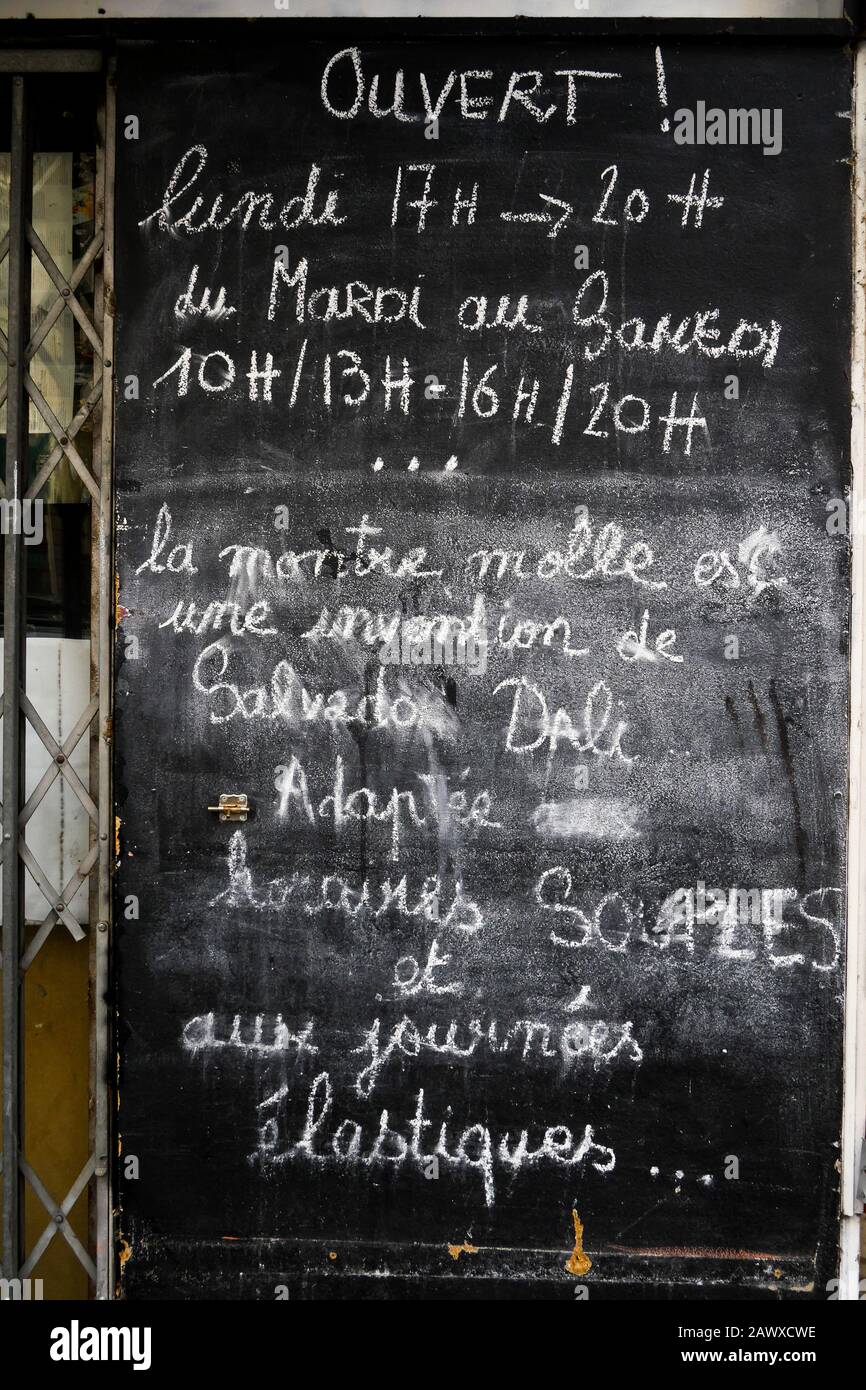 OUVERT !
lundi 17H → 20H
du MARDI au SAMEDI
10H/13H-16H/20H
...
la montre molle est
une invention de
Salvado DALi ..
Adaptée
horaires SOUPLES
et
aux journées
élastiques ...
alamy
Image ID: 2AWXCWE
www.alamy.com